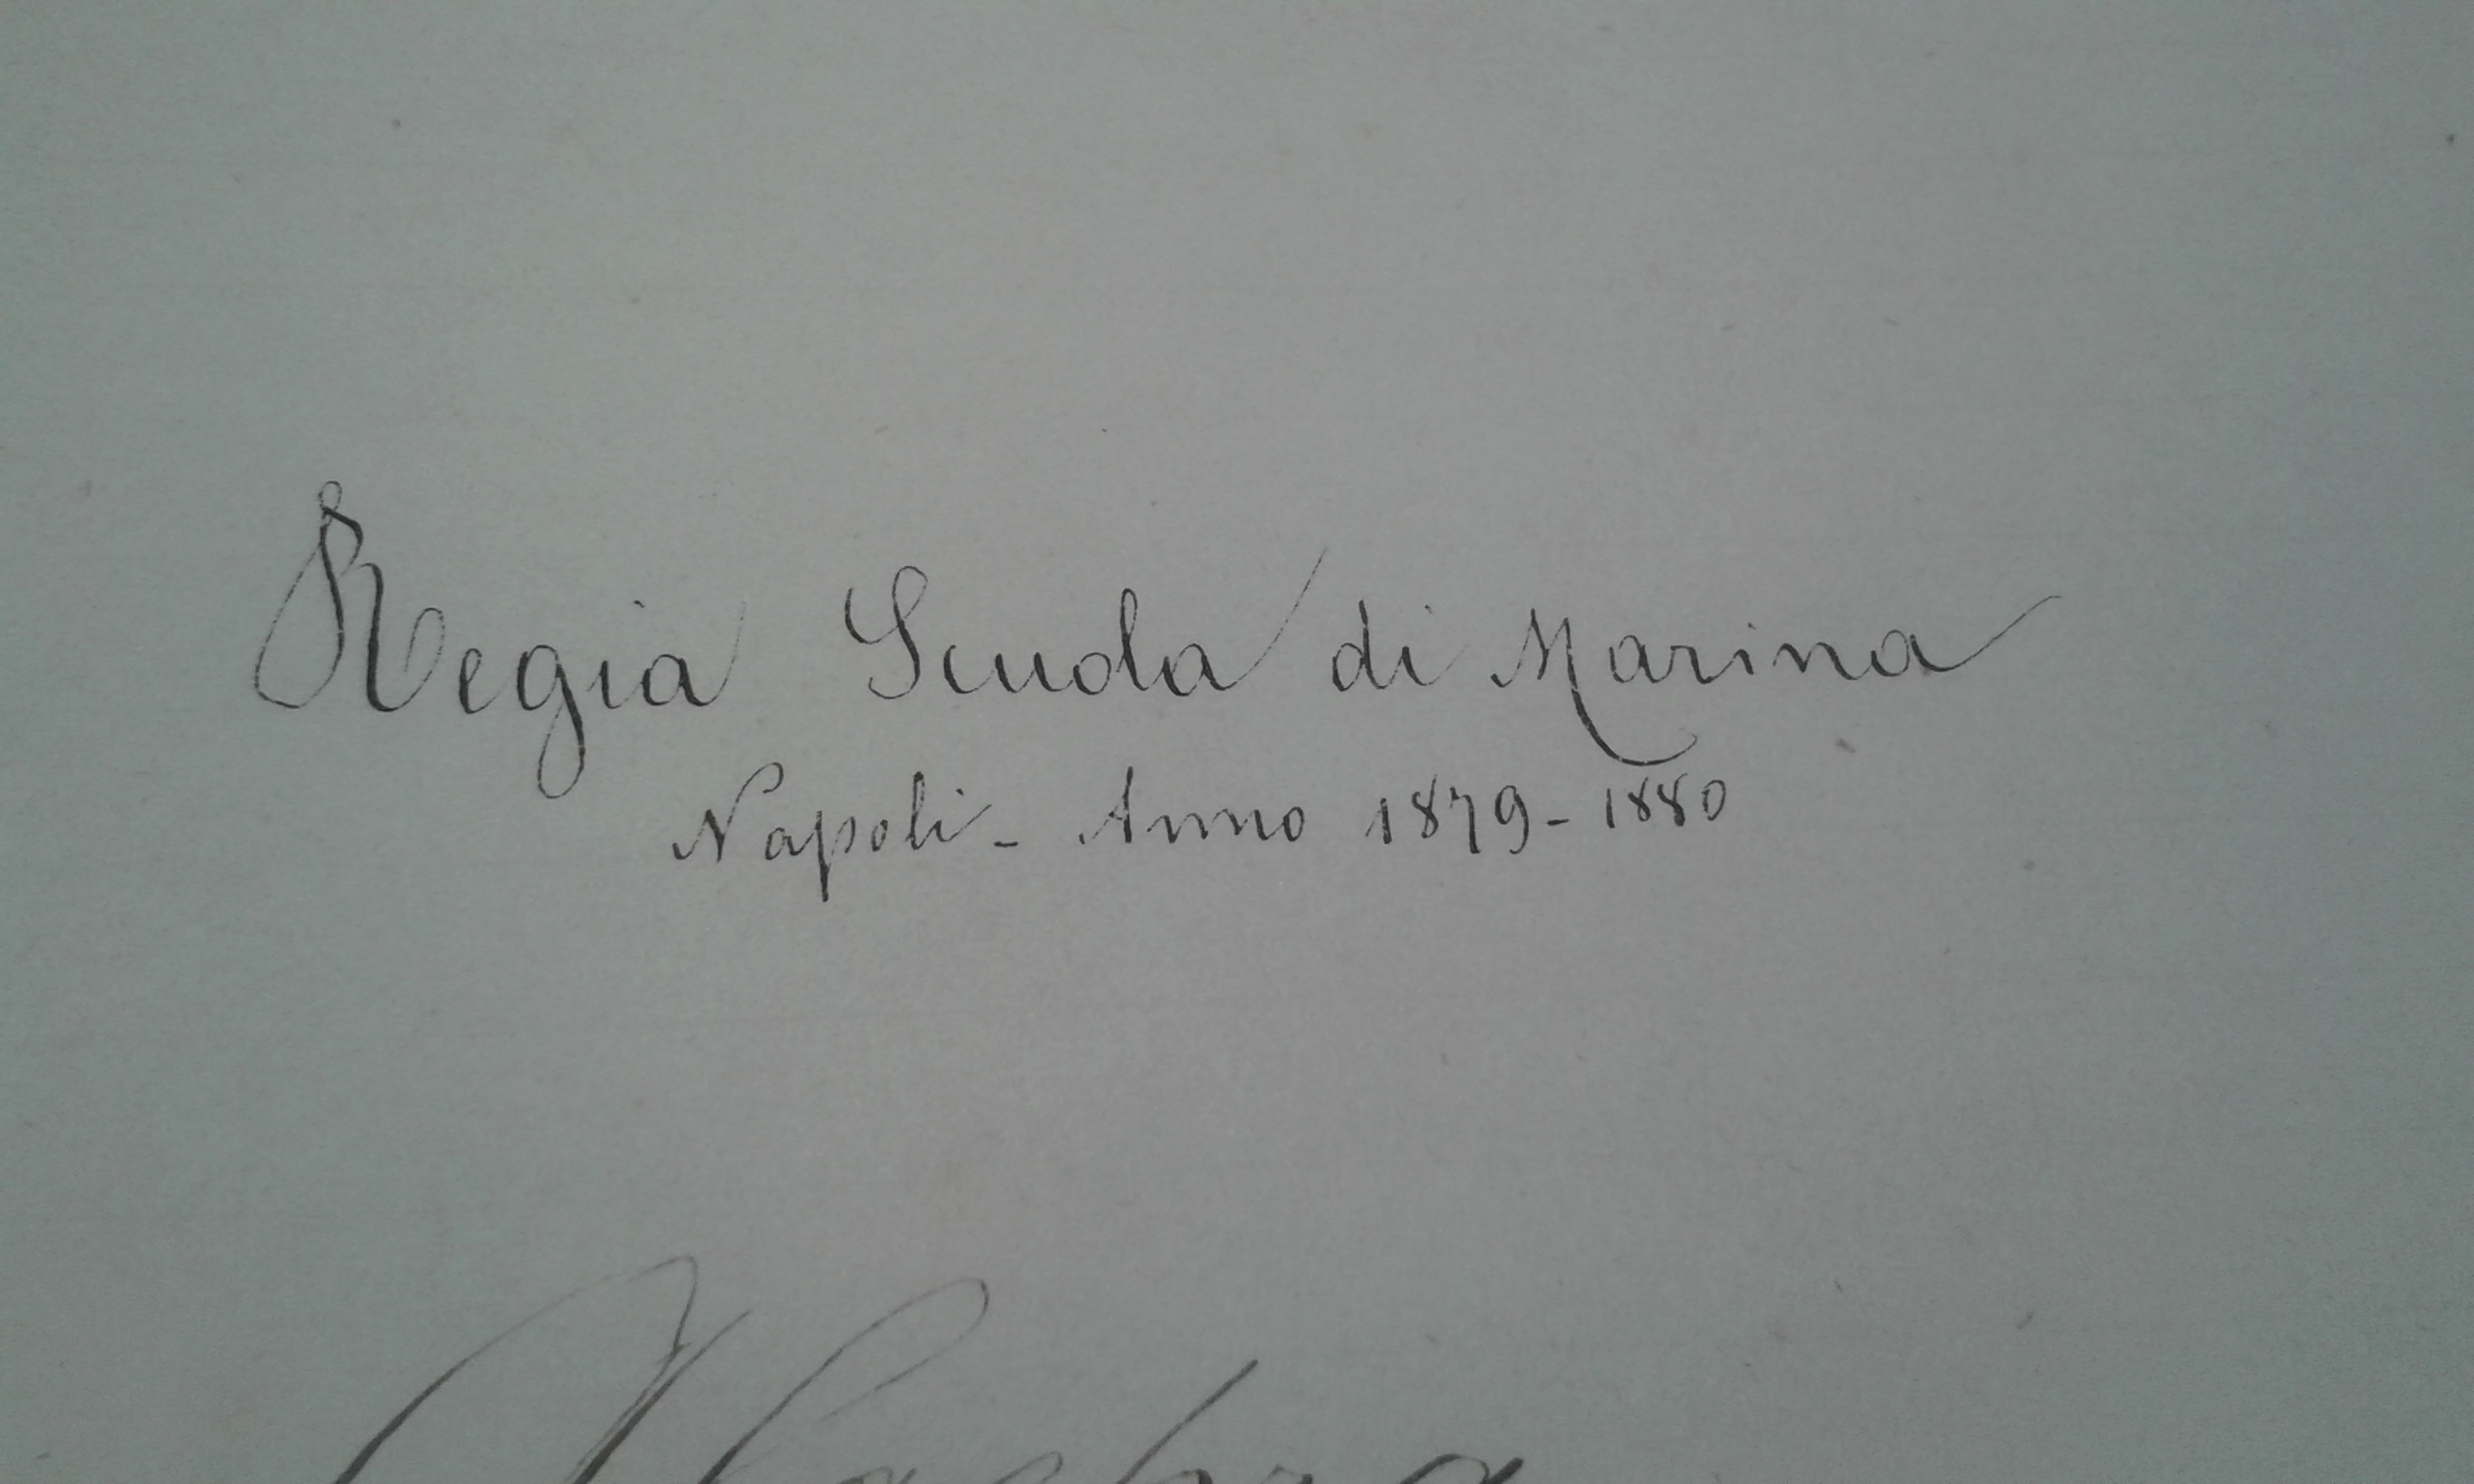 Regia Scuola di Marina
Napoli - Anno 1879 - 1880